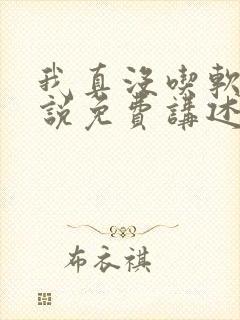 我真没喫軟
說免費講述
布衣祺